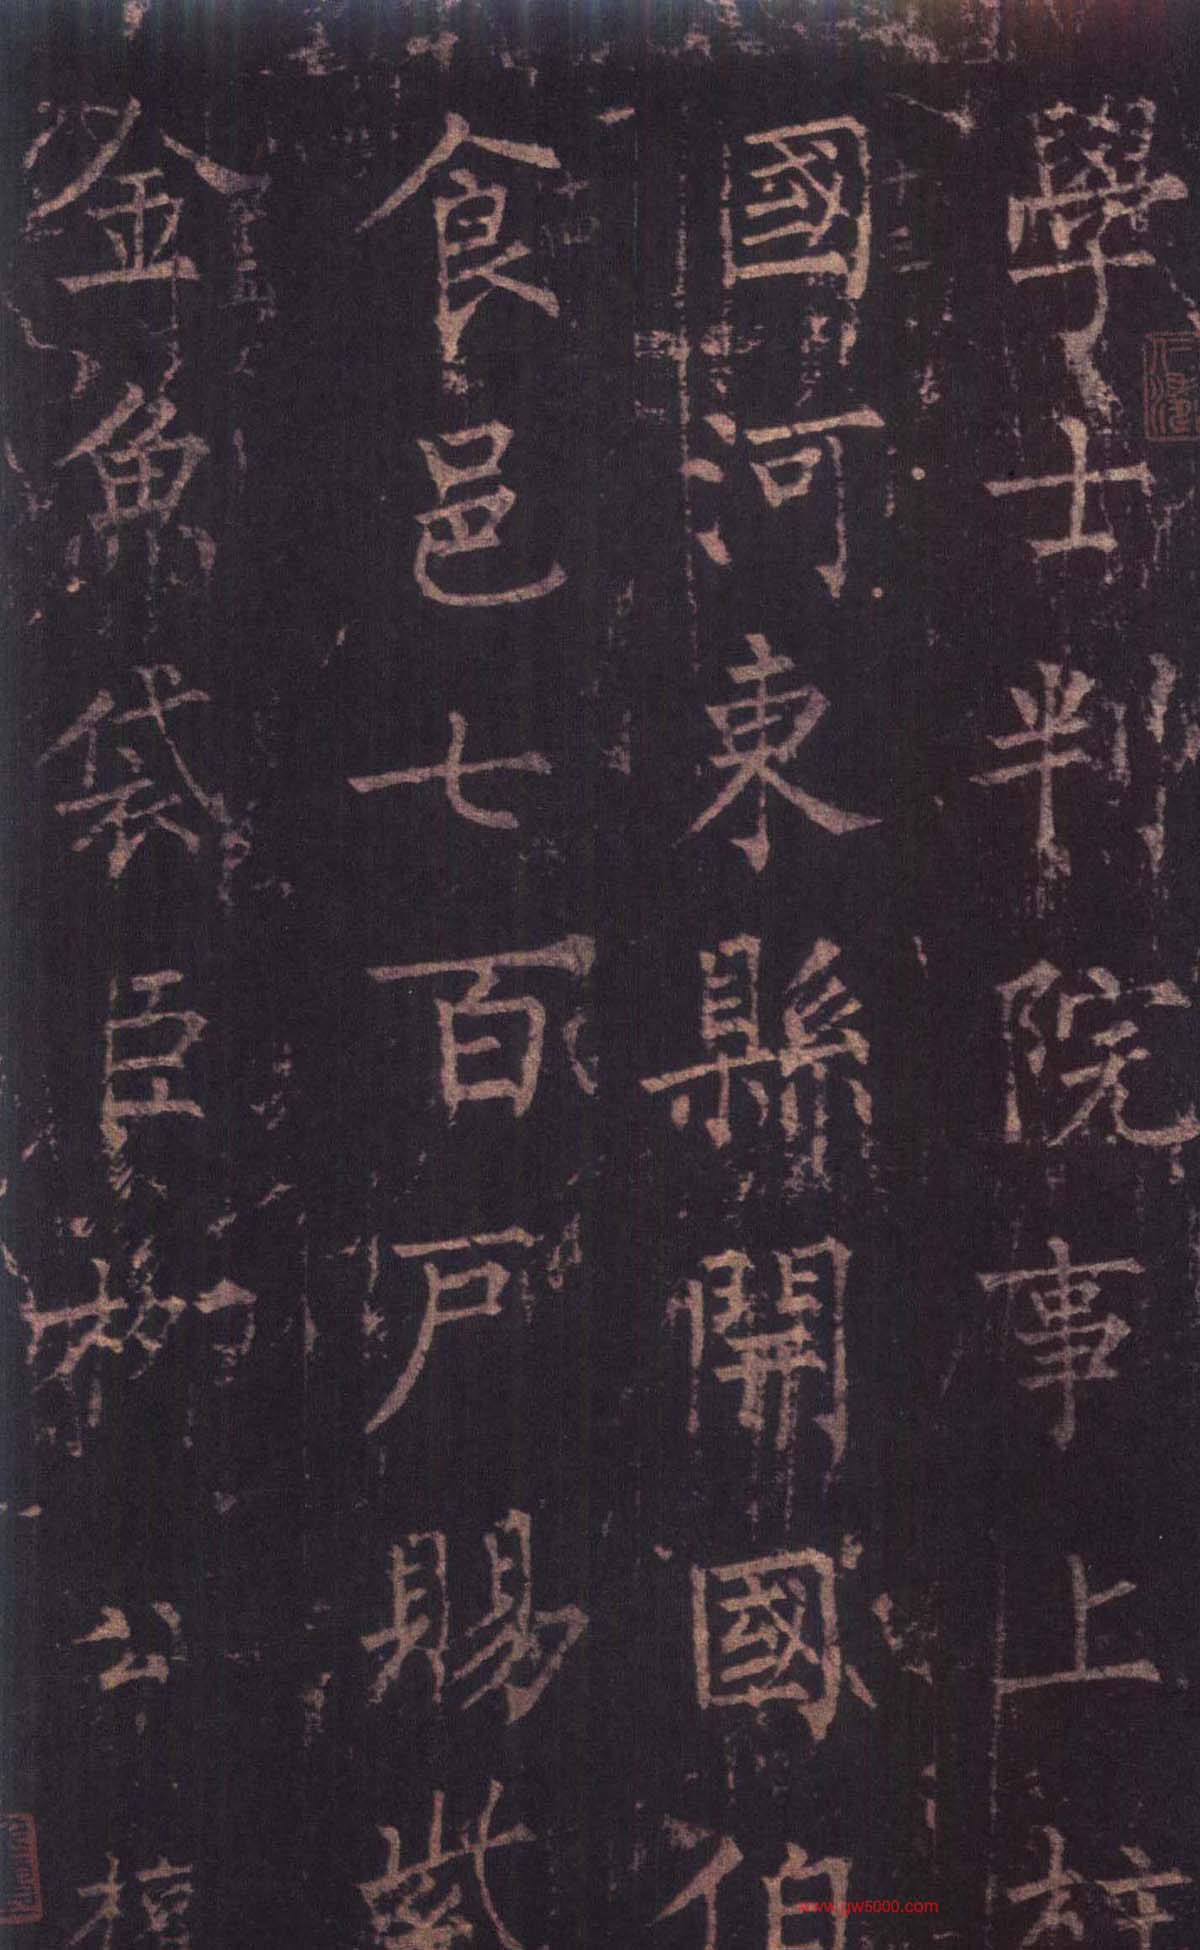 學士判院事上柱
十三
國河東縣開國伯
十四
食邑七百戶賜紫
金魚袋臣柳公權
www.gw5000.com